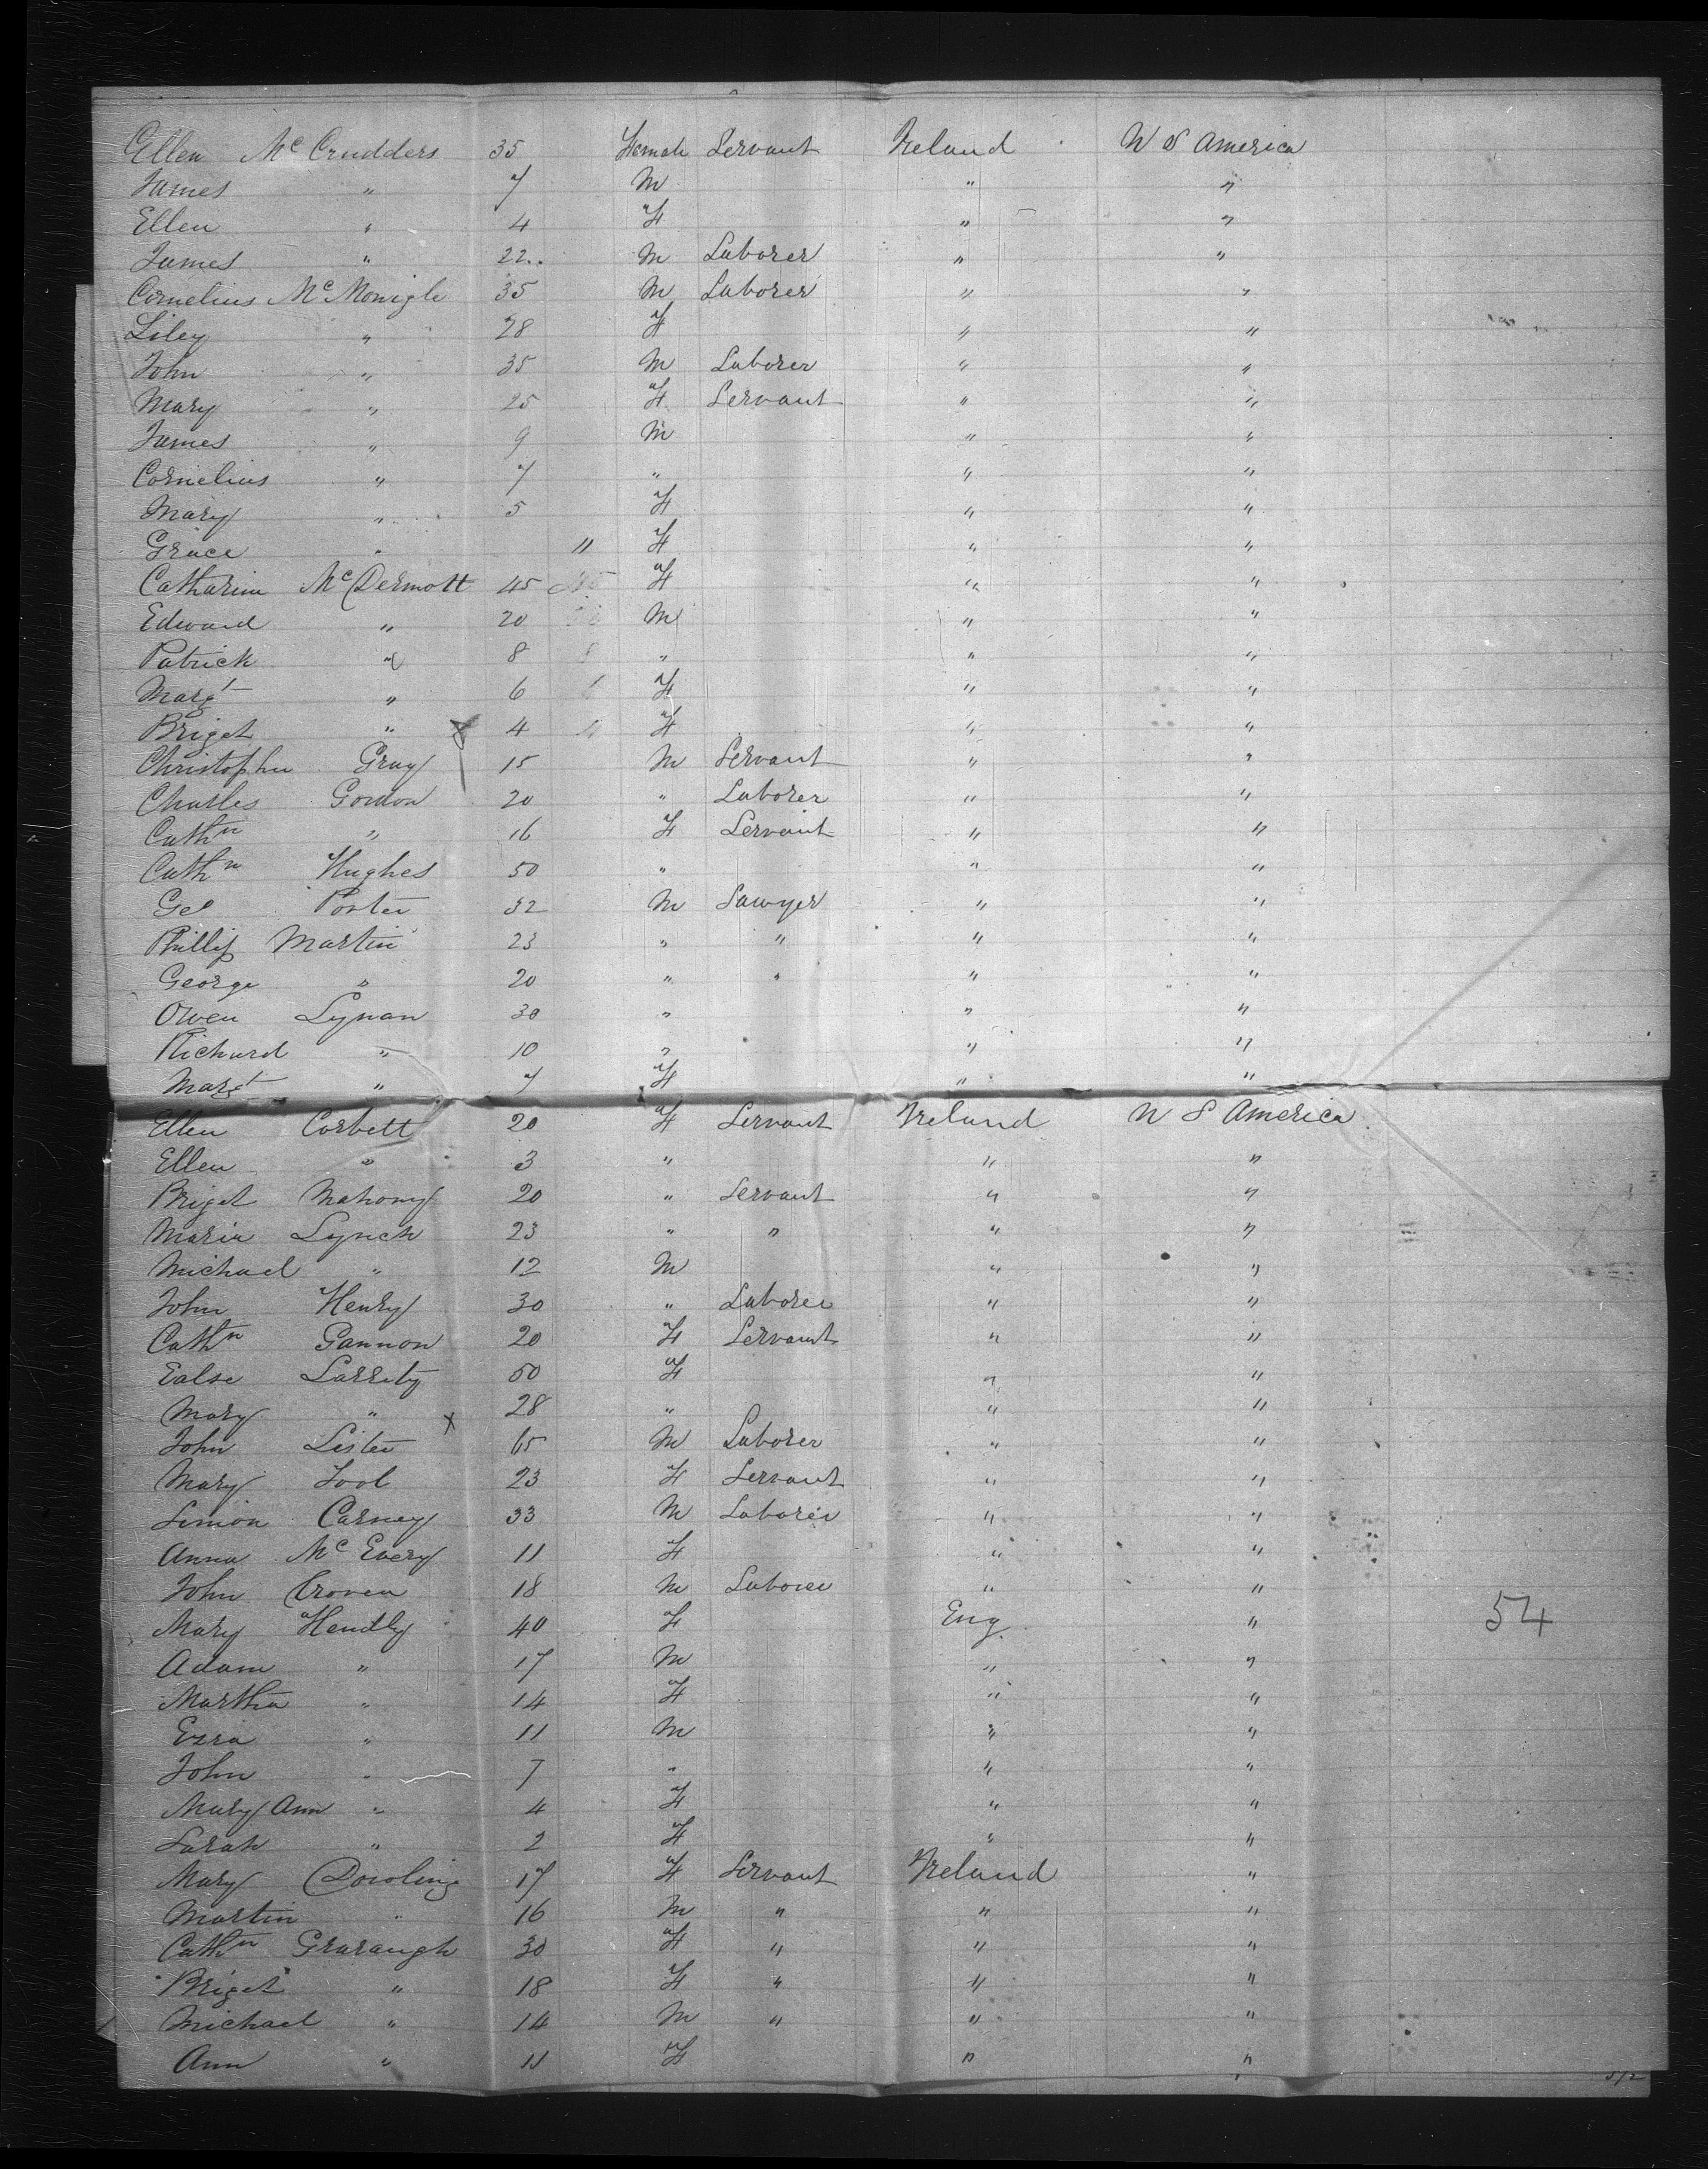 Ellen McCrudders 35 Female Servant Ireland U S America
James " 7 M " "
Ellen " 4 F " "
James " 22 M Laborer " "
Cornelius McMonigle 35 M Laborer " "
Liley " 28 F " "
John " 35 M Laborer " "
Mary " 25 F Servant " "
James " 9 M " "
Cornelius " 7 " " "
Mary " 5 F " "
Grace " 11 F " "
Catharine McDermott 45 45 F " "
Edward " 20 20 M " "
Patrick " 8 8 " " "
Margt " 6 6 F " "
Briget " 4 4 F " "
Christopher Gray 15 M Servant " "
Charles Gordon 20 " Laborer " "
Cathn " 16 F Servant " "
Cathn Hughes 50 " " "
Geo Porter 32 M Sawyer " "
Phillip Martin 23 " " " "
George " 20 " " " "
Owen Lynan 30 " " "
Richard " 10 " " "
Margt " 7 F " "
Ellen Corbett 20 F Servant Ireland U S America
Ellen " 3 " " "
Briget Mahony 20 " Servant " "
Maria Lynch 23 " " " "
Michael " 12 M " "
John Henry 30 " Laborer " "
Cathn Gannon 20 F Servant " "
Ealse Larrity 50 F " "
Mary " x 28 " " "
John Lister 65 M Laborer " "
Mary Tool 23 F Servant " "
Simon Carney 33 M Laborer " "
Anna McEvery 11 F " "
John Croven 18 M Laborer " "
Mary Hendly 40 F Eng. " 54
Adam " 17 M " "
Martha " 14 F " "
Ezra " 11 M " "
John " 7 " " "
Mary Ann " 4 F " "
Sarah " 2 F " "
Mary Dowling 17 F Servant Ireland "
Martin " 16 M " " "
Cathn Graraugh 30 F " " "
Briget " 18 F " " "
Michael " 14 M " " "
Ann " 11 F " "